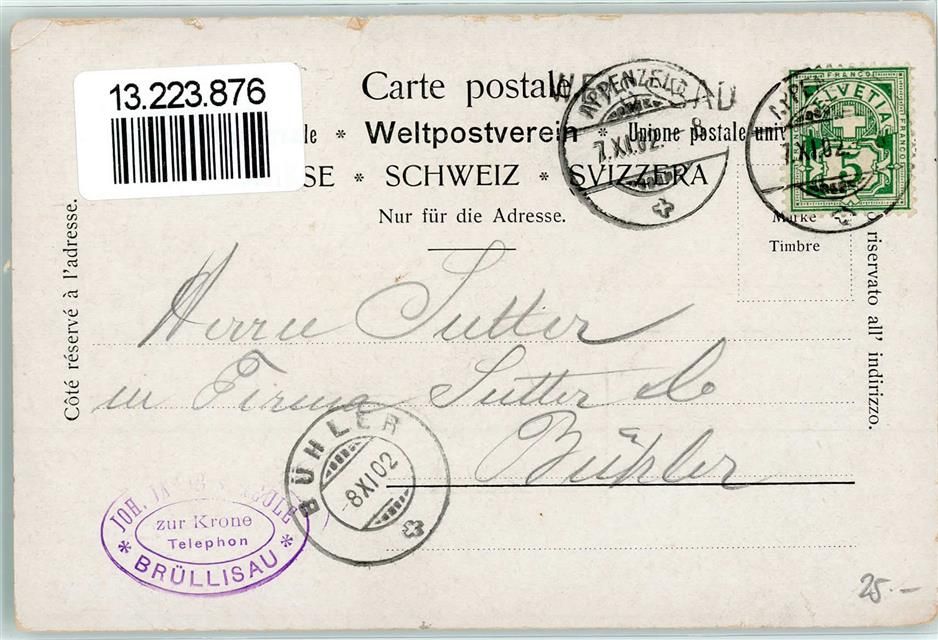 13.223.876
Carte postale
WEISSBAD
Weltpostverein * Unione postale univ
SE * SCHWEIZ * SVIZZERA
Nur für die Adresse.
APPENZELL
7.XI.02. 8
7.XI.02.
FRANCO
HELVETIA
FRANCO
5
Marke
Timbre
Côté réservé à l'adresse.
riservato all' indirizzo.
Herrn Sutter
in Firma Sutter & Co
Bühler
BÜHLER
8.XI.02
JOH.
zur Krone
Telephon
* BRÜLLISAU *
25.-